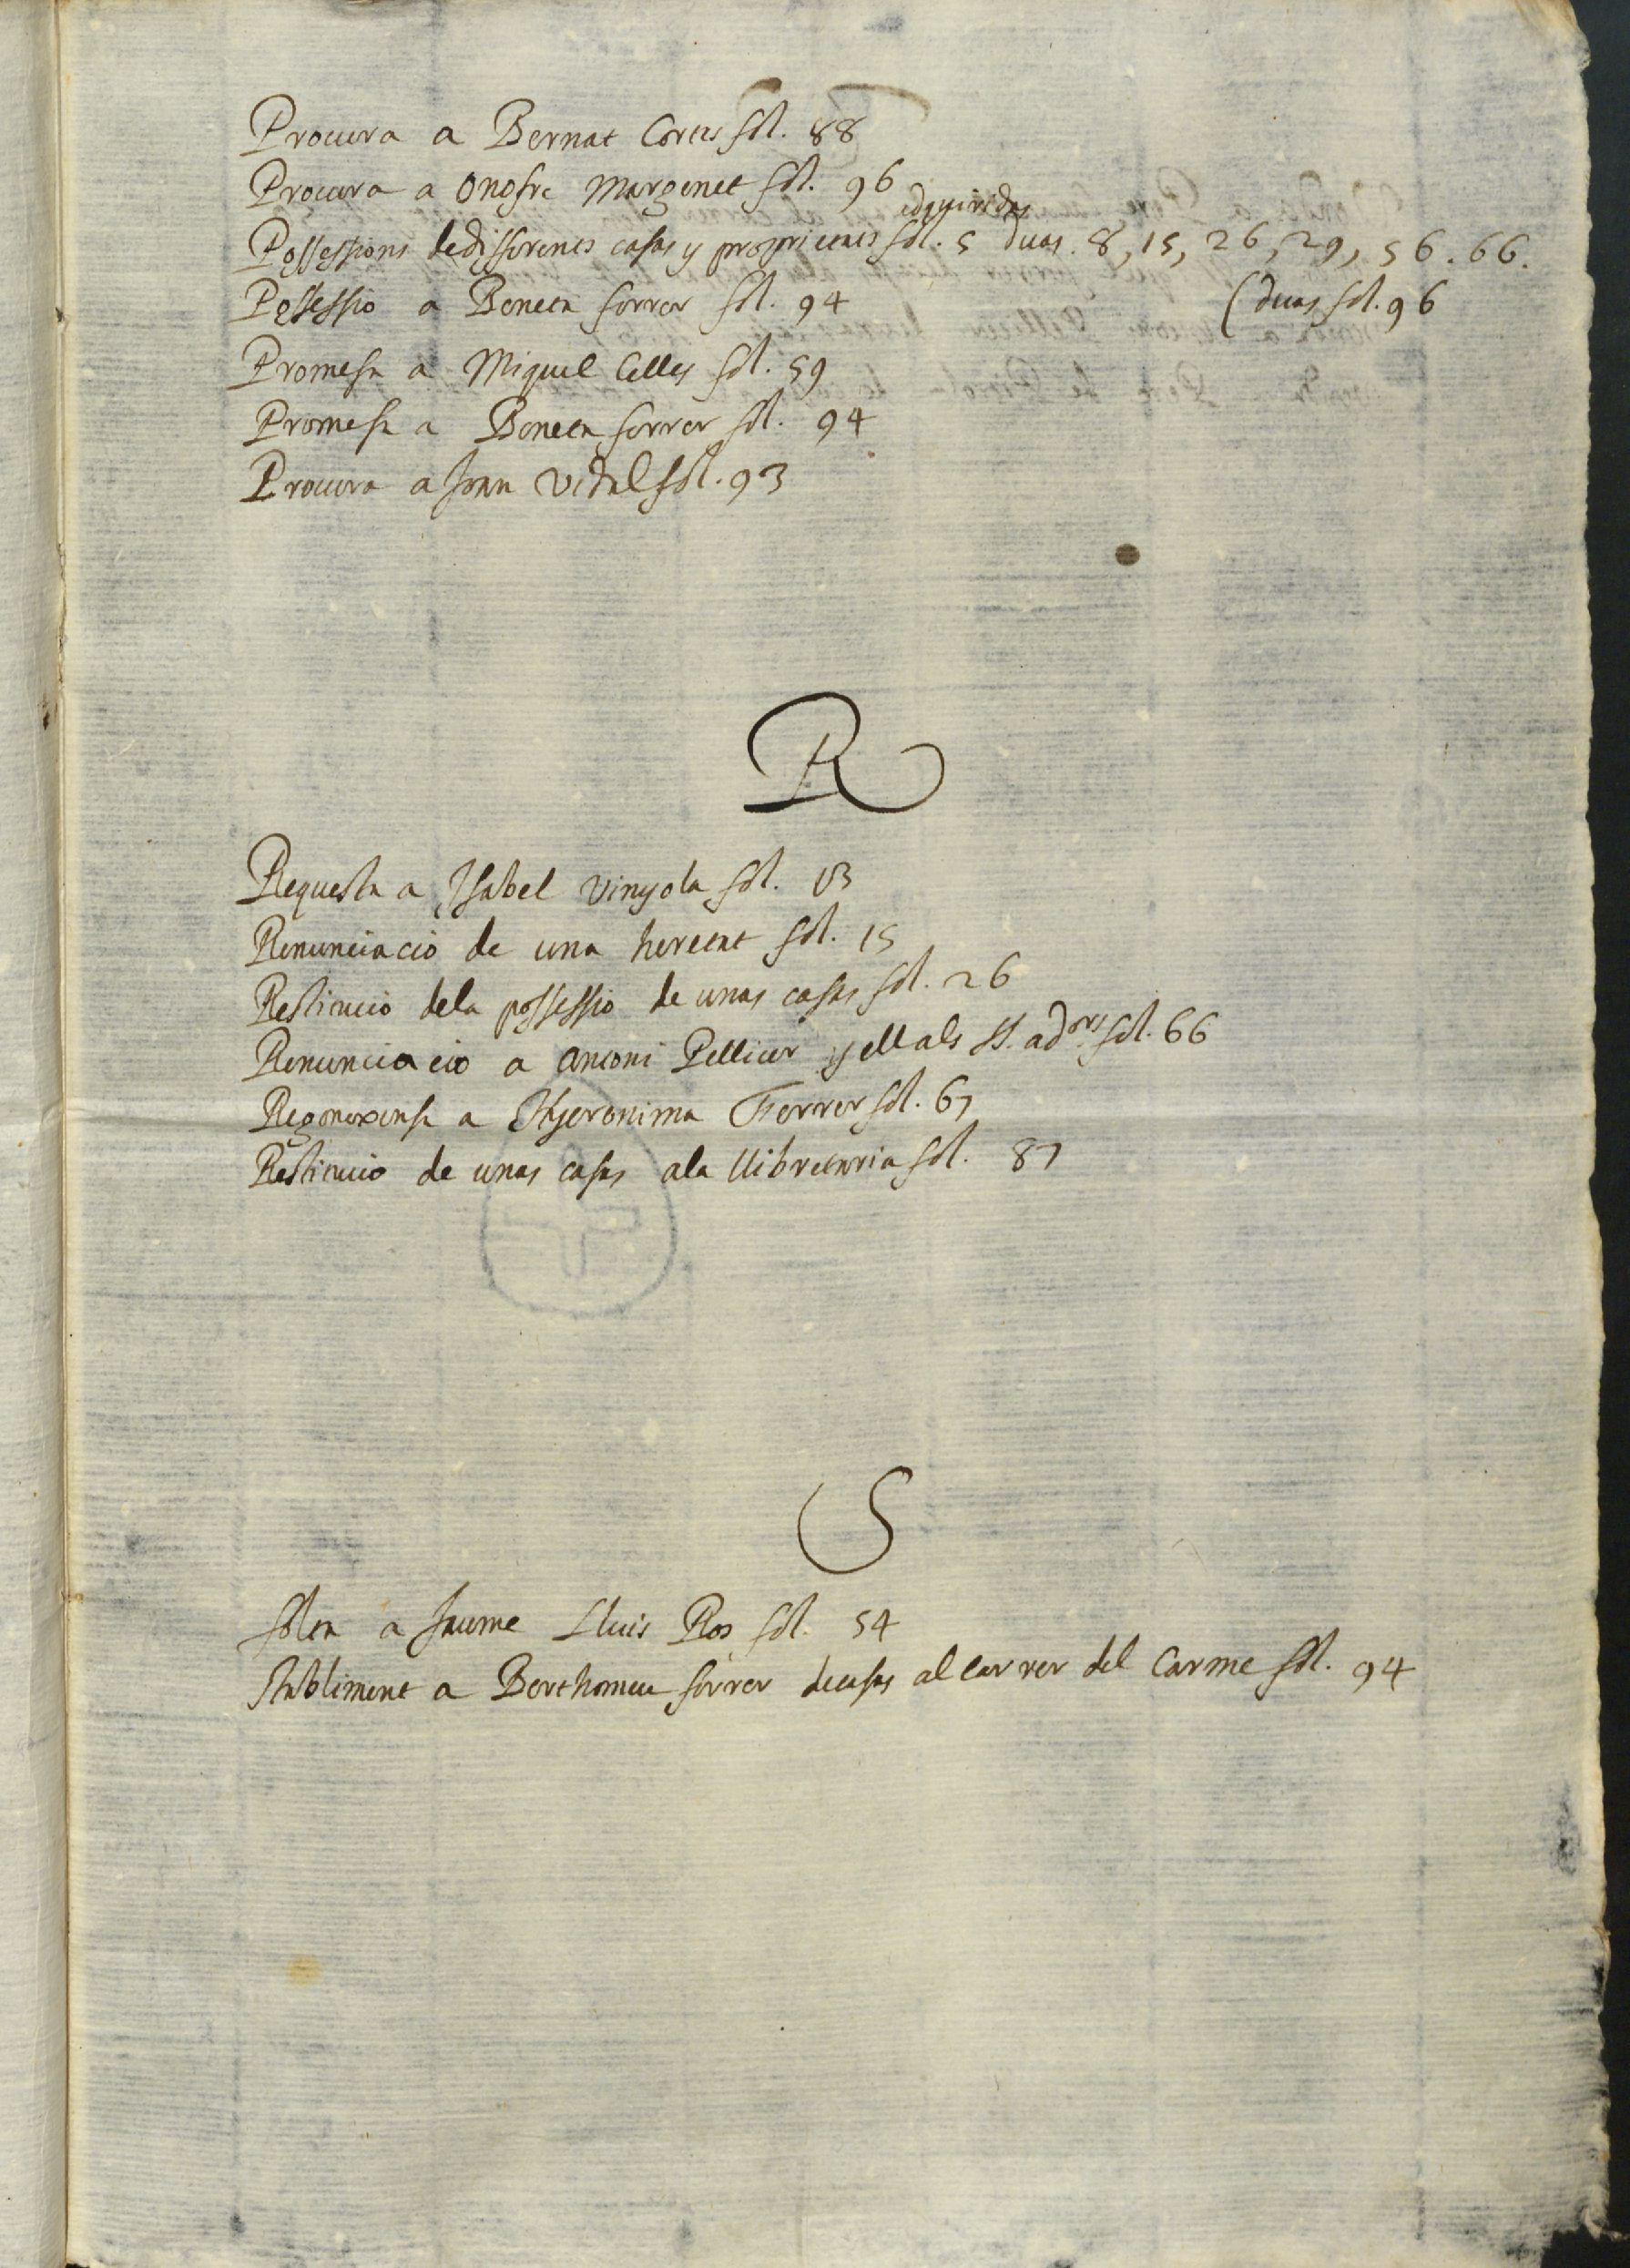 Procura a Bernat Cortes fol. 88
Procura a Onofre Margenet fol. 96
adquiridas
Possessions de differents casas y proprietats fol. 5 duas. 8, 15, 26, 29, 56. 66.
Possessio a Beneta ferrer fol. 94 (duas fol. 96
Promesa a Miquel Celles fol. 59
Promesa a Beneta ferrer fol. 94
Procura a Joan Vidal fol. 93
R
Requesta a Isabel Vinyola fol. 13
Renunciacio de una heretat fol. 15
Restitucio dela possessio de unas casas fol. 26
Renunciacio a Antoni Pellicer y ell als SS. adors fol. 66
Regonexensa a Hyeronima Ferrer fol. 67
Restitucio de unas casas a la llibreteria fol. 87
S
Solta a Jaume Lluis Ros fol. 54
Stabliment a Berthomeu ferrer de casas al carrer del Carme fol. 94